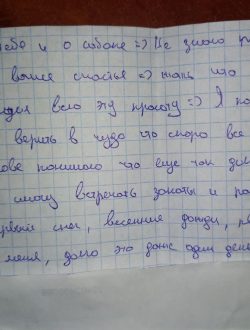 тебе и о собаке =) Не знаю
ваше счастье =) жаль что
всю эту красоту =) Я
верить в чудо что скоро все
понимаю что еще так дол
смогу встречать закаты и ра
первый снег, весенние дожди,
меня, долго это даже один день